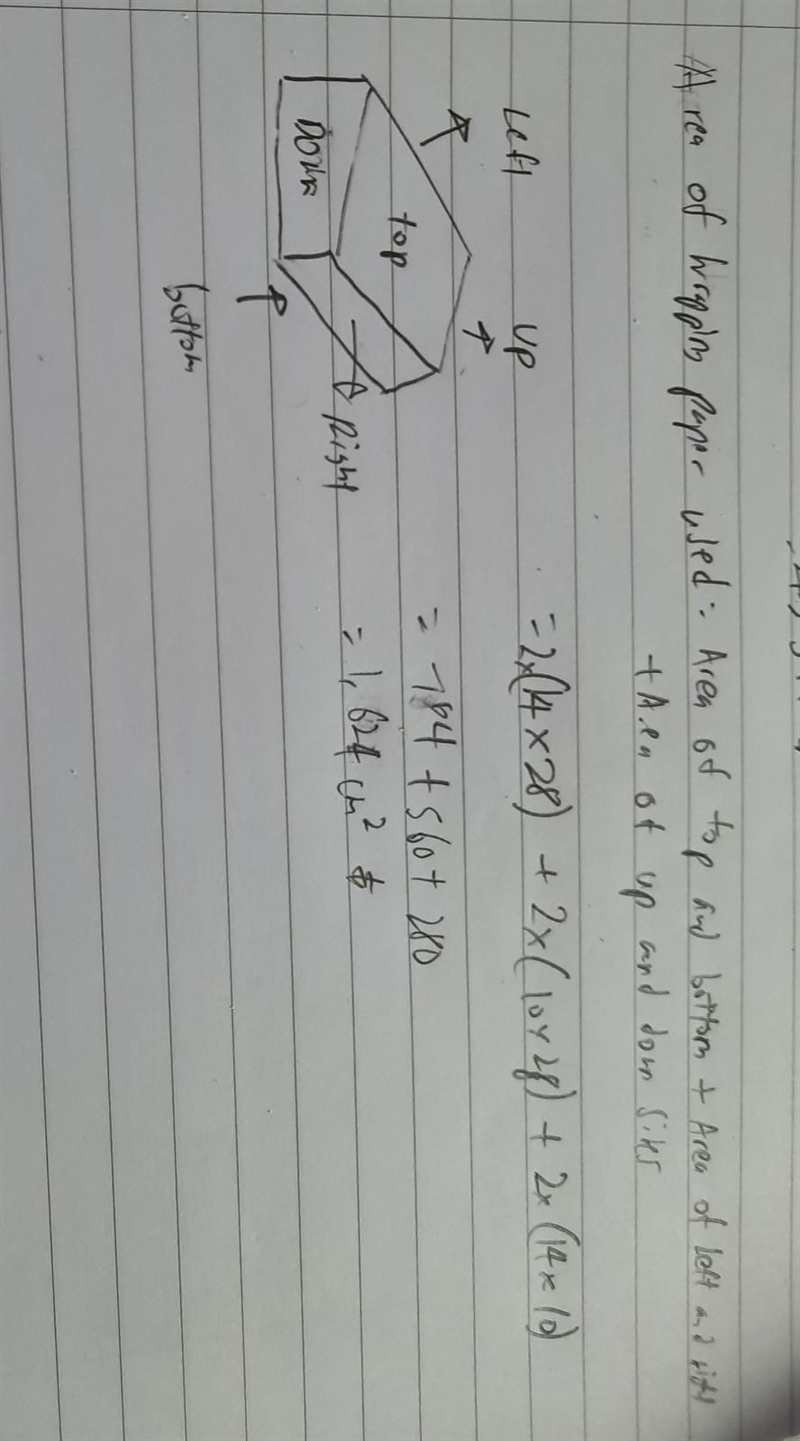 Area of wrappin paper used = Area of top and bottom + Area of left and right
+ Area of up and down sides
Left
Up
top
Down
Right
bottom
= 2x(14 x 28) + 2x(10x28) + 2x(14x10)
= 784 + 560 + 280
= 1,624 cm²